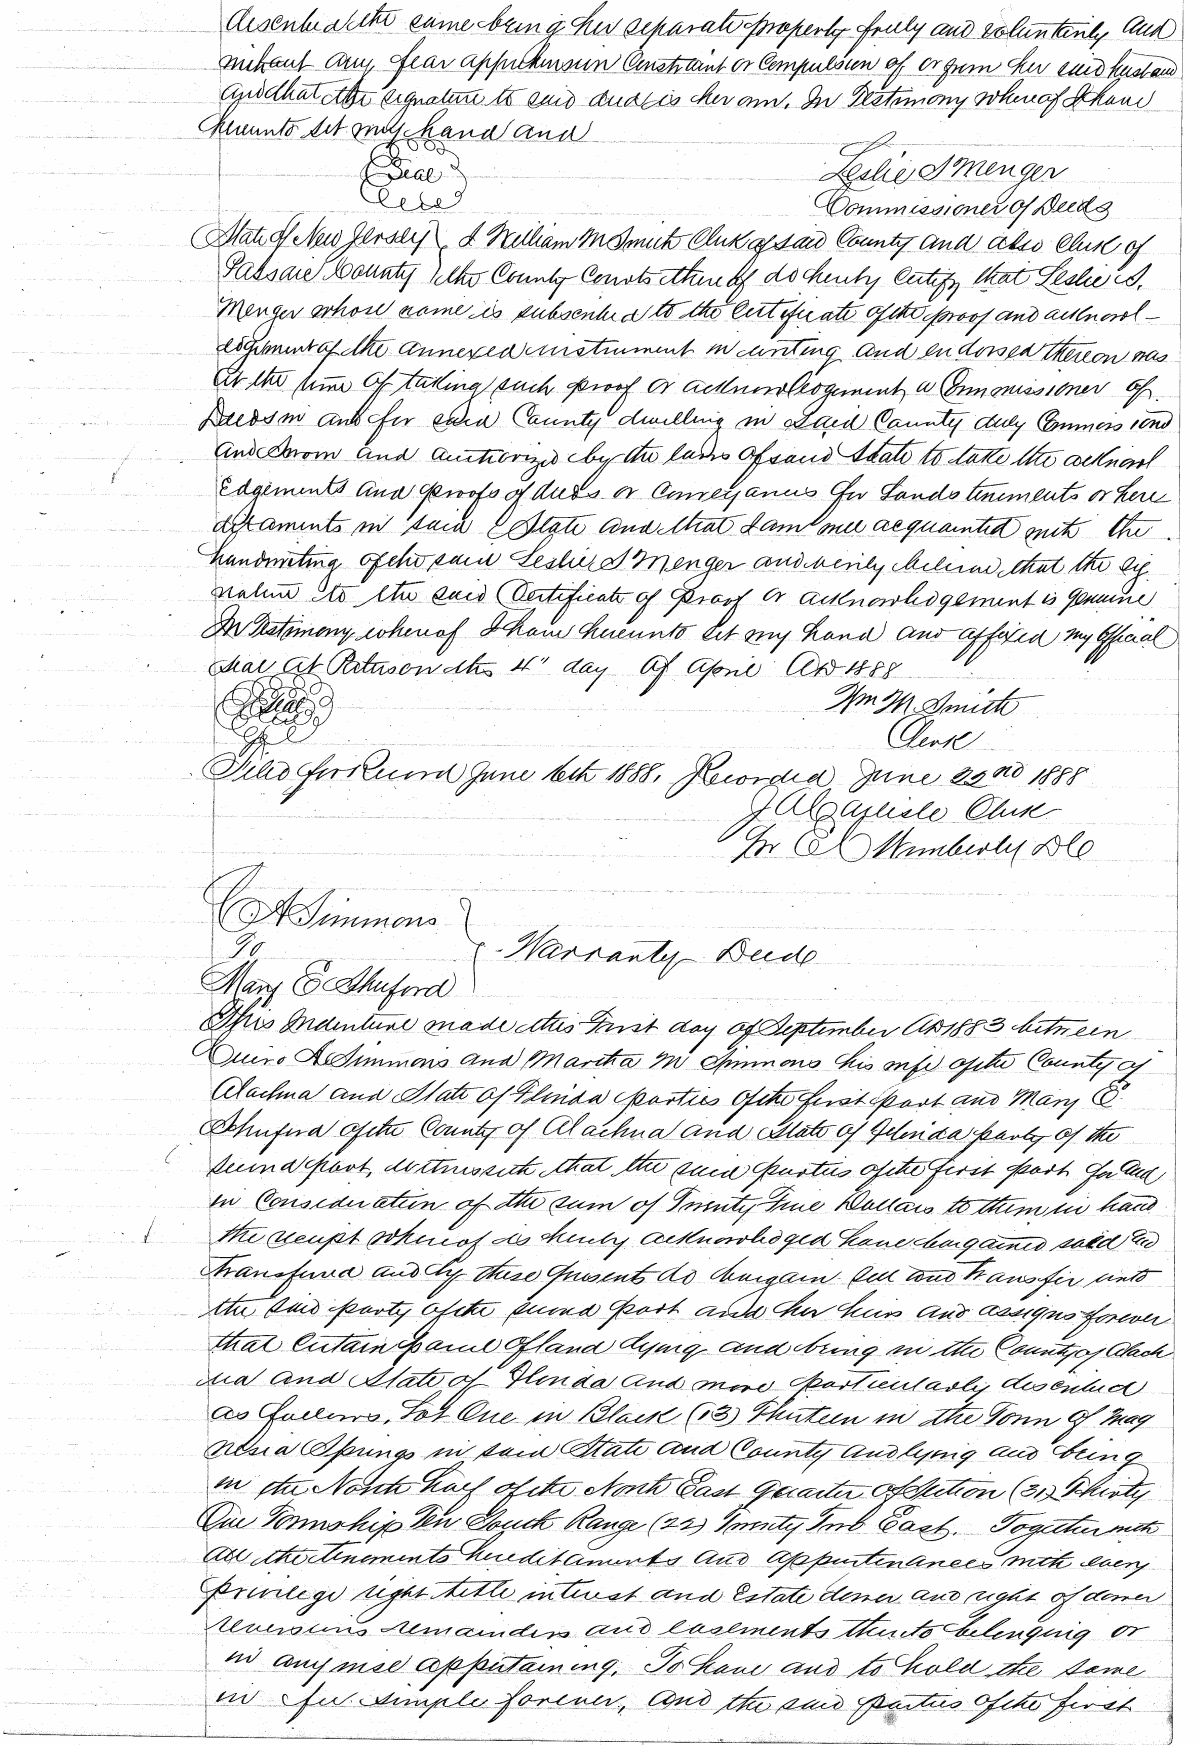 described the same being her separate property freely and voluntarily and
without any fear apprehension Constraint or Compulsion of or from her said husband
and that the signature to said deed is her own. In Testimony whereof I have
hereunto set my hand and
Seal
Leslie S Menger
Commissioner of Deeds
State of New Jersey } I William M Smith Clerk of said County and also Clerk of
Passaic County } the County Courts thereof do hereby Certify that Leslie S.
Menger whose name is subscribed to the Certificate of the proof and acknowl-
edgement of the annexed instrument in writing and endorsed thereon was
at the time of taking such proof or acknowledgement a Commissioner of
Deeds in and for said County dwelling in said County duly Commissiond
and sworn and authorized by the laws of said State to take the acknowl
edgements and proofs of deeds or Conveyances for Lands tenements or here
ditaments in said State and that I am well acquainted with the
handwriting of the said Leslie S Menger and verily believe that the sig
nature to the said Certificate of proof or acknowledgement is genuine
In Testimony whereof I have hereunto set my hand and affixed my Official
seal at Paterson this 4" day of April AD 1888
Seal
Wm M. Smith
Clerk
Filed for Record June 16th 1888. Recorded June 22nd 1888
J A Carlisle Clerk
Wimberly DC
A Simmons
To } Warranty Deed
Mary E Shuford
This Indenture made this First day of September AD 1883 between
A Simmons and Martha M Simmons his wife of the County of
Alachua and State of Florida parties of the first part and Mary E
Shuford of the County of Alachua and State of Florida party of the
second part, witnesseth that the said parties of the first part for and
in Consideration of the sum of Twenty Five Dollars to them in hand
the receipt whereof is hereby acknowledged have bargained sold and
transferred and by these presents do bargain sell and transfer unto
the said party of the second part and her heirs and assigns forever
that Certain parcel of land lying and being in the County of Alach
ua and State of Florida and more particularly described
as follows, Lot One in Block (13) Thirteen in the Town of Mag
nesia Springs in said State and County and lying and being
in the North half of the North East quarter of Section (31) Thirty
One Township Ten South Range (22) Twenty Two East. Together with
all the tenements hereditaments and appurtenances with every
privilege right title interest and Estate dower and right of dower
reversions remainders and easements thereto belonging or
in any wise appertaining, To have and to hold the same
in fee simple forever, and the said parties of the first